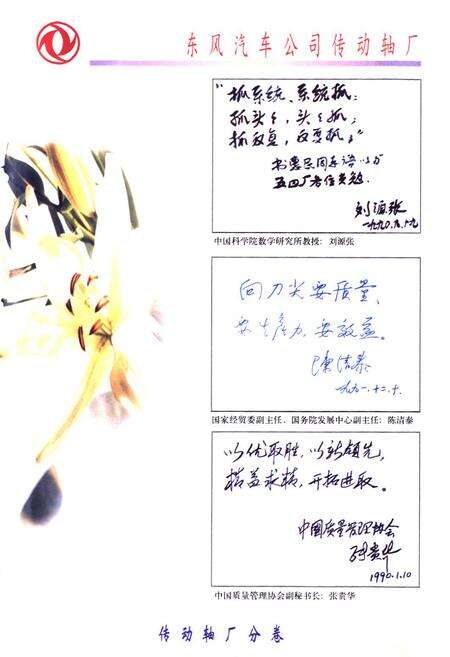 东风汽车公司传动轴厂
“抓系统、系统抓;
抓头头,头头抓;
抓反复,反复抓。”
五四厂
刘源张
一九九〇.九.十九
中国科学院数学研究所教授:刘源张
向刀尖要质量,
要生产力,要效益。
陈清泰
一九九一.十二.十
国家经贸委副主任、国务院发展中心副主任:陈清泰
以优取胜,以新领先,
精益求精,开拓进取。
中国质量管理协会
张贵华
1990.1.10
中国质量管理协会副秘书长:张贵华
传动轴厂分卷